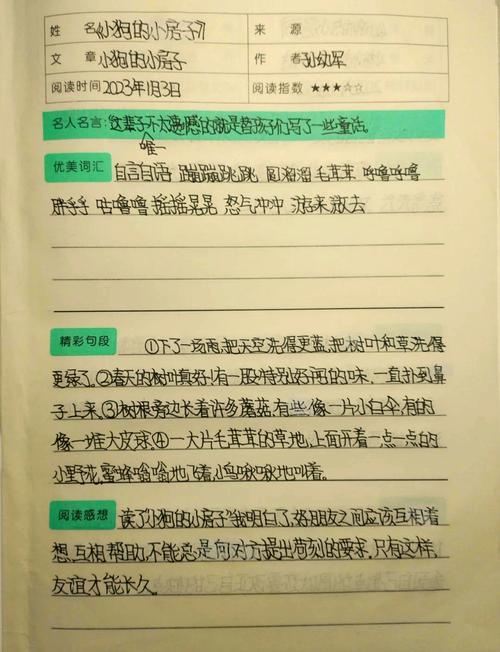 姓 名 《小狗的小房子》 来 源
文 章 小狗的小房子 作 者 孙幼军
阅读时间 2023年1月3日 阅读指数 ★★★☆☆
名人名言: 这辈子不太遗憾的就是替孩子们写了一些童话。
唯一
优美词汇 自言自语 蹦蹦跳跳 圆溜溜 毛茸茸 呼噜呼噜
胖乎乎 咕噜噜 摇摇晃晃 怒气冲冲 游来游去
精彩句段 ①下了一场雨,把天空洗得更蓝,把树叶和草洗得
更绿了。②春天的树叶真好!有一股特别好闻的味,一直扑到鼻
子上来。③树根旁边长着许多蘑菇,有些像一片小白伞,有的
像一堆大皮球。④一大片毛茸茸的草地,上面开着一点一点的
小野花,蜜蜂嗡嗡地飞着,小鸟啾啾地叫着。
阅读感想 读了“小狗的小房子”我明白了,好朋友之间应该互相着
想,互相帮助,不能总是向对方提出苛刻的要求,只有这样,
友谊才能长久。